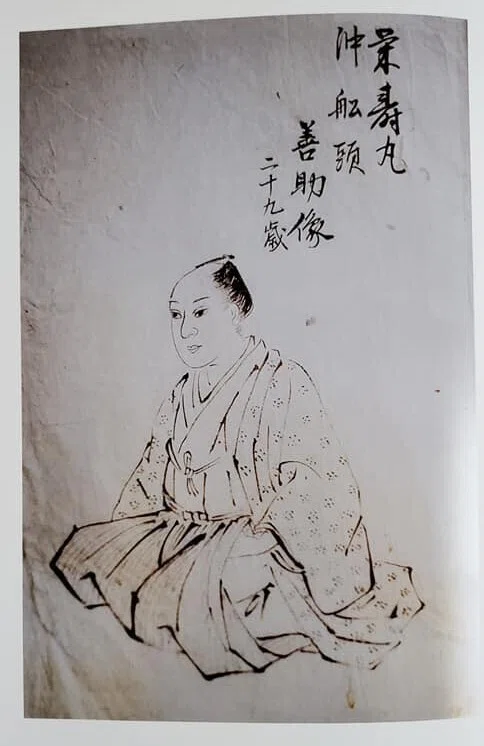 栄寿丸
沖船頭
善助像
二十九歳